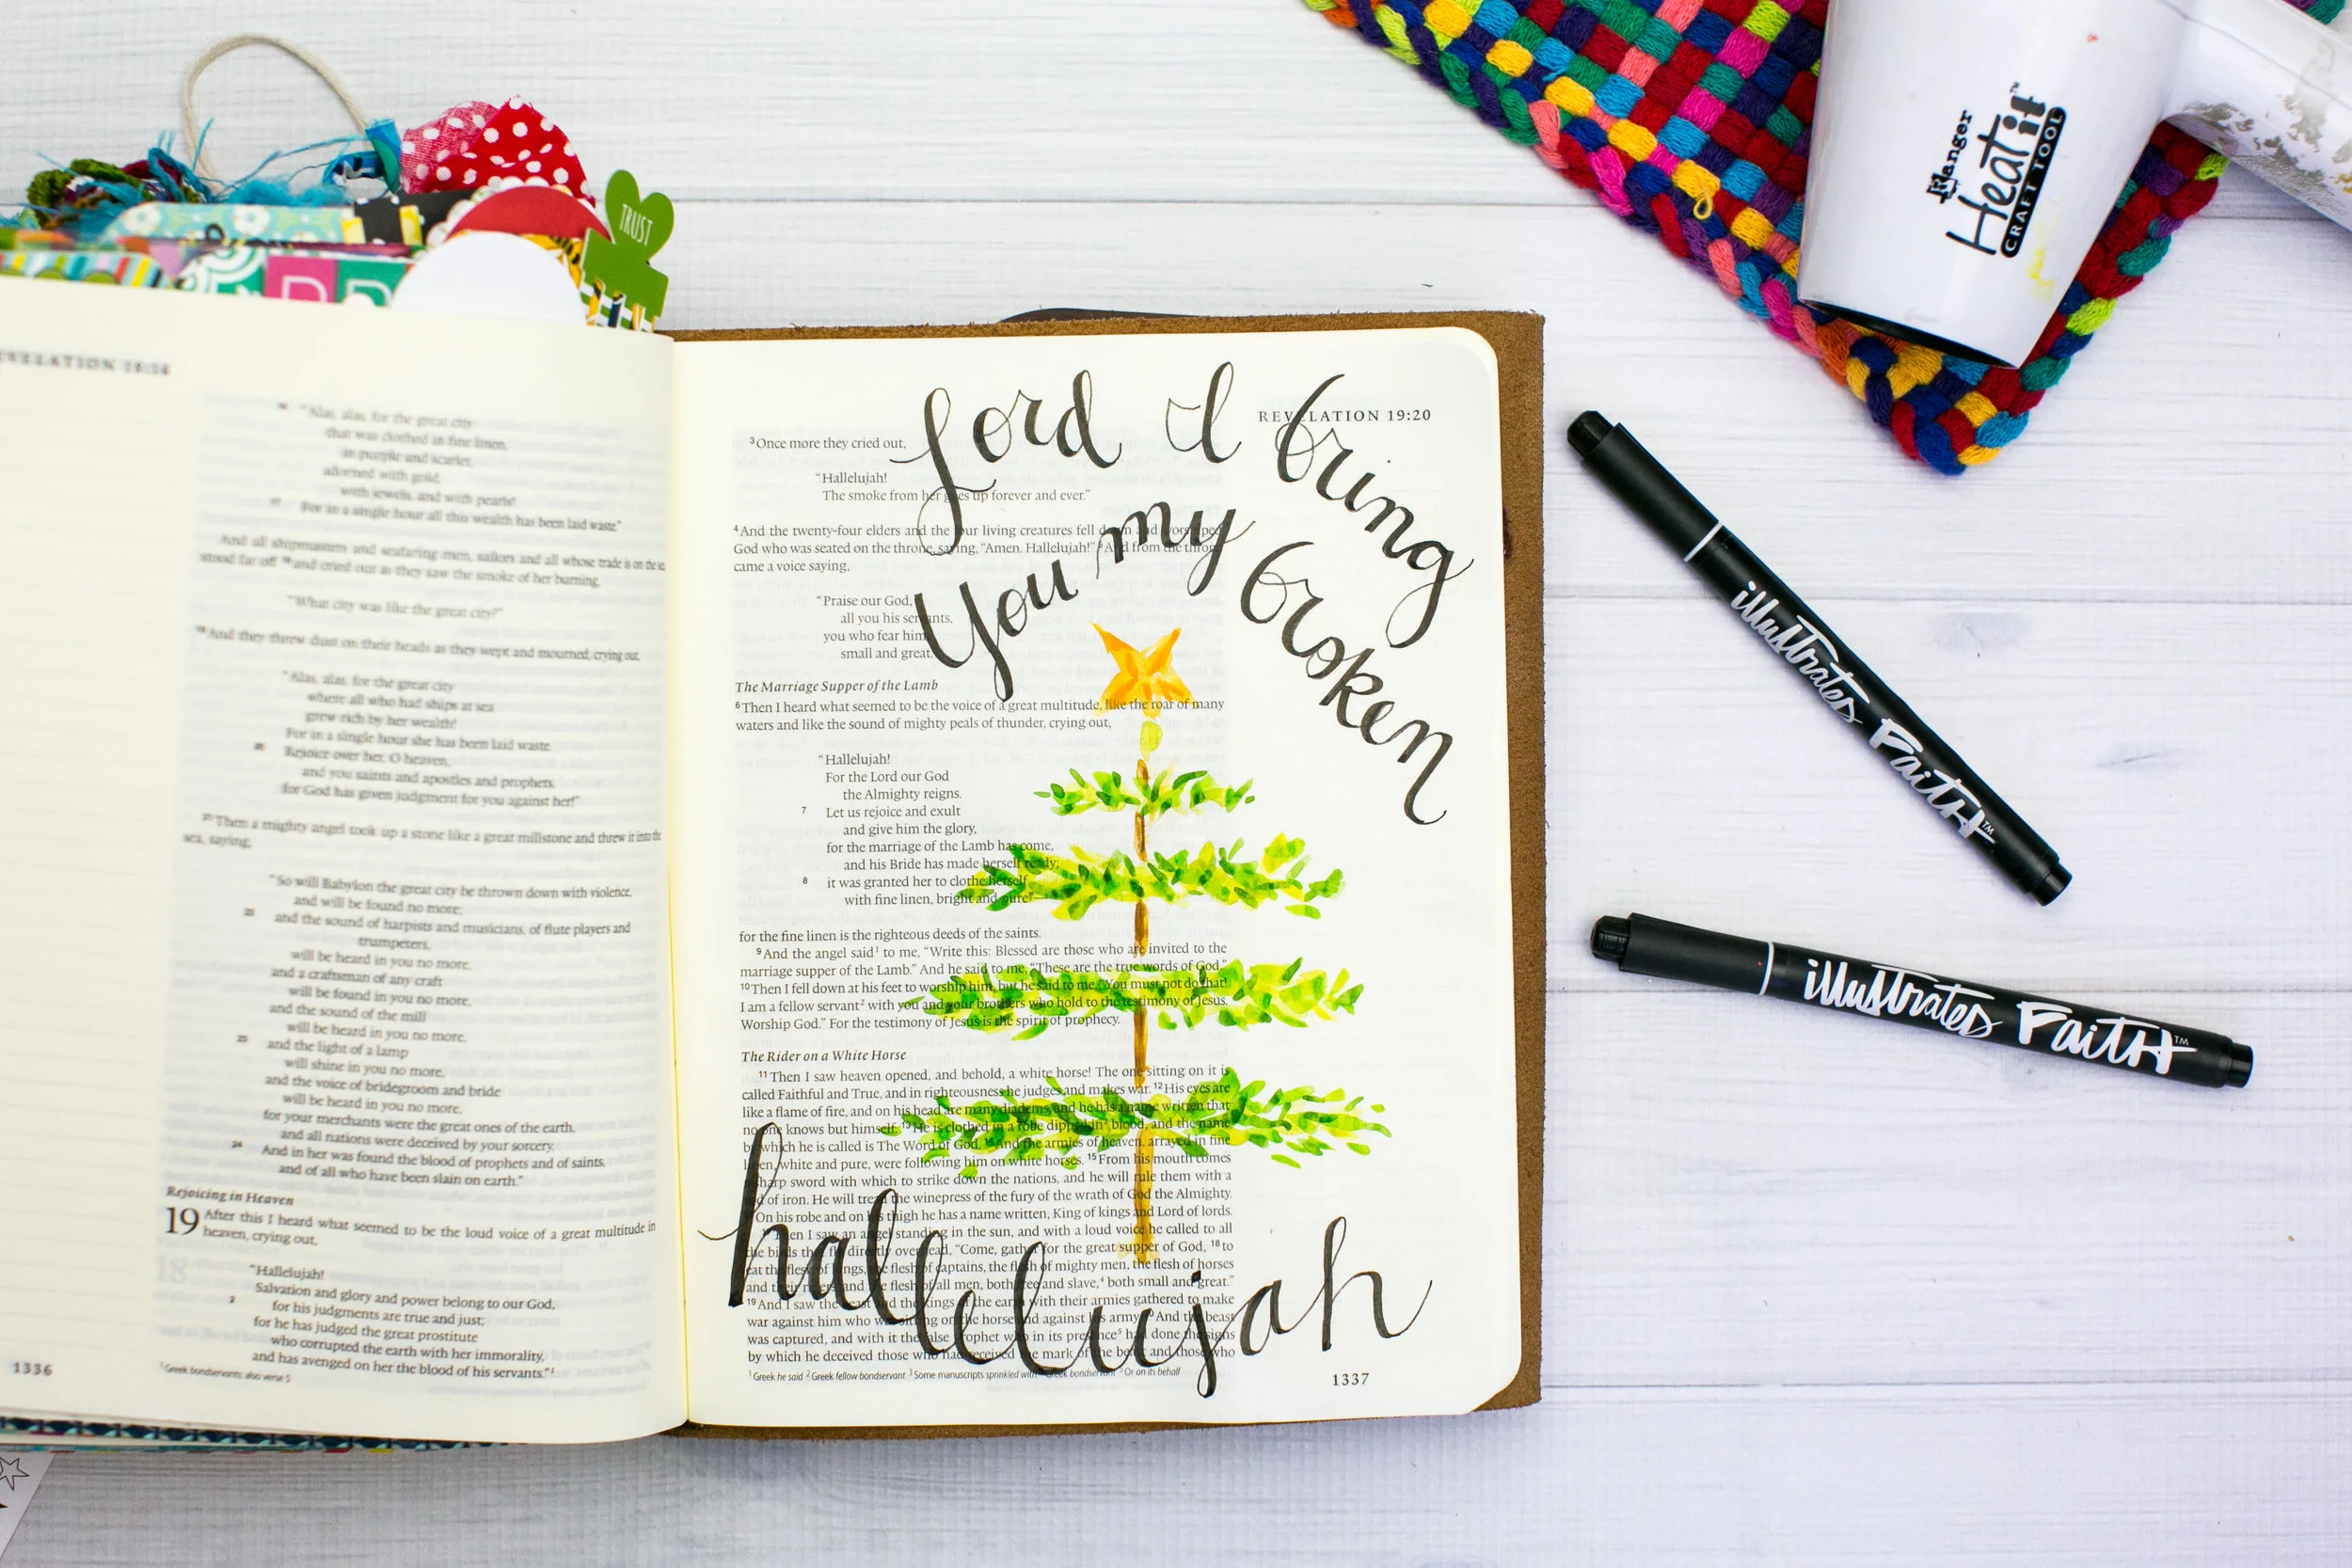 TRUST
Ranger
Heat it™
CRAFT TOOL
illustrated Faith™
illustrated Faith™
REVELATION 18:16
"Alas, alas, for the great city
that was clothed in fine linen,
in purple and scarlet,
adorned with gold,
with jewels, and with pearls!
17 For in a single hour all this wealth has been laid waste."
And all shipmasters and seafaring men, sailors and all whose trade is on the sea,
stood far off 18 and cried out as they saw the smoke of her burning,
"What city was like the great city?"
19 And they threw dust on their heads as they wept and mourned, crying out,
"Alas, alas, for the great city
where all who had ships at sea
grew rich by her wealth!
For in a single hour she has been laid waste.
20 Rejoice over her, O heaven,
and you saints and apostles and prophets,
for God has given judgment for you against her!"
21 Then a mighty angel took up a stone like a great millstone and threw it into the
sea, saying,
"So will Babylon the great city be thrown down with violence,
and will be found no more;
22 and the sound of harpists and musicians, of flute players and
trumpeters,
will be heard in you no more,
and a craftsman of any craft
will be found in you no more,
and the sound of the mill
will be heard in you no more,
23 and the light of a lamp
will shine in you no more,
and the voice of bridegroom and bride
will be heard in you no more,
for your merchants were the great ones of the earth,
and all nations were deceived by your sorcery.
24 And in her was found the blood of prophets and of saints,
and of all who have been slain on earth."
Rejoicing in Heaven
19 After this I heard what seemed to be the loud voice of a great multitude in
heaven, crying out,
"Hallelujah!
Salvation and glory and power belong to our God,
2 for his judgments are true and just;
for he has judged the great prostitute
who corrupted the earth with her immorality,
and has avenged on her the blood of his servants."1
1 Greek bondservants; also verse 5
1336
Lord I bring
You my broken
hallelujah
REVELATION 19:20
3 Once more they cried out,
"Hallelujah!
The smoke from her goes up forever and ever."
4 And the twenty-four elders and the four living creatures fell down and worshiped
God who was seated on the throne, saying, "Amen. Hallelujah!" 5 And from the throne
came a voice saying,
"Praise our God,
all you his servants,
you who fear him,
small and great."
The Marriage Supper of the Lamb
6 Then I heard what seemed to be the voice of a great multitude, like the roar of many
waters and like the sound of mighty peals of thunder, crying out,
"Hallelujah!
For the Lord our God
the Almighty reigns.
7 Let us rejoice and exult
and give him the glory,
for the marriage of the Lamb has come,
and his Bride has made herself ready;
8 it was granted her to clothe herself
with fine linen, bright and pure"—
for the fine linen is the righteous deeds of the saints.
9 And the angel said1 to me, "Write this: Blessed are those who are invited to the
marriage supper of the Lamb." And he said to me, "These are the true words of God."
10 Then I fell down at his feet to worship him, but he said to me, "You must not do that!
I am a fellow servant2 with you and your brothers who hold to the testimony of Jesus.
Worship God." For the testimony of Jesus is the spirit of prophecy.
The Rider on a White Horse
11 Then I saw heaven opened, and behold, a white horse! The one sitting on it is
called Faithful and True, and in righteousness he judges and makes war. 12 His eyes are
like a flame of fire, and on his head are many diadems, and he has a name written that
no one knows but himself. 13 He is clothed in a robe dipped in3 blood, and the name
by which he is called is The Word of God. 14 And the armies of heaven, arrayed in fine
linen, white and pure, were following him on white horses. 15 From his mouth comes
a sharp sword with which to strike down the nations, and he will rule them with a
rod of iron. He will tread the winepress of the fury of the wrath of God the Almighty.
On his robe and on his thigh he has a name written, King of kings and Lord of lords.
17 Then I saw an angel standing in the sun, and with a loud voice he called to all
the birds that fly directly overhead, "Come, gather for the great supper of God, 18 to
eat the flesh of kings, the flesh of captains, the flesh of mighty men, the flesh of horses
and their riders, and the flesh of all men, both free and slave,4 both small and great."
19 And I saw the beast and the kings of the earth with their armies gathered to make
war against him who was sitting on the horse and against his army. 20 And the beast
was captured, and with it the false prophet who in its presence5 had done the signs
by which he deceived those who had received the mark of the beast and those who
1 Greek he said 2 Greek fellow bondservant 3 Some manuscripts sprinkled with 4 Greek bondservant 5 Or on its behalf
1337